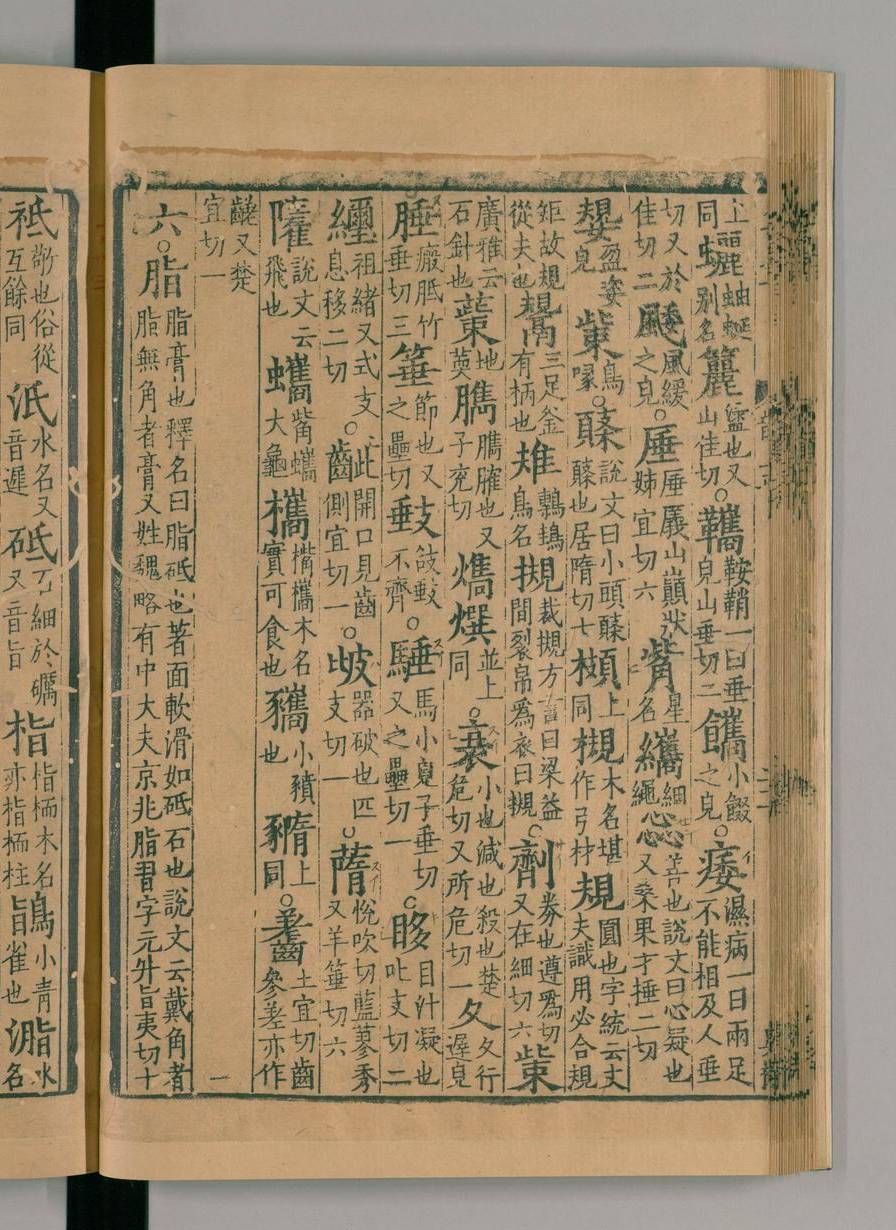 上同 蚰蜒別名 籭 盪也又山佳切 ○ 鞍鞘一曰垂皃山垂切二 小餟之皃 ○ 痿 濕病一曰兩足不能相及人垂
切又於佳切二 風緩之皃 ○ 厜 厜㕒山巔狀姊宜切六 觜 星名 纗 細繩 惢 善也說文曰心疑也又桑果才捶二切
嫢 盈姿皃 鳥喙 ○ 說文曰小頭也居隋切七 上同 槻 木名堪作弓材 規 圓也字統云丈夫識用必合規
矩故規從夫也 鬹 三足釜有柄也 鳥名 摫 裁摫方言曰梁益間裂帛爲衣曰摫 ○ 劑 券也遵爲切又在細切六
廣雅云石針也 地䓴 臇 臇也又子兖切 並上同 ○ 衰 小也減也殺也楚危切又所危切一 夊 夊行遲皃
腄 瘢胝竹垂切三 箠 節也又之壘切 不齊 ○ 馬小皃子垂切又之壘切一 ○ 眵 目汁凝也叱支切二
纚 祖緒又式支息移二切 ○ 開口見齒側宜切一 ○ 器破也匹支切一 ○ 悅吹切藍蓼秀又羊箠切六
說文云飛也 蠵 觜蠵大龜 欈 欈木名實可食也 小豶也 上同 ○ 士宜切齒參差亦作
又楚宜切一
六 ○ 脂 脂膏也釋名曰脂砥也著面軟滑如砥石也說文云戴角者脂無角者膏又姓魏略有中大夫京兆脂習字元升旨夷切十
一
祗 敬也俗從互餘同 泜 水名又音遲 砥 石細於礪又音旨 栺 栺栭木名亦栺栭柱 鴲 小青雀也 水名